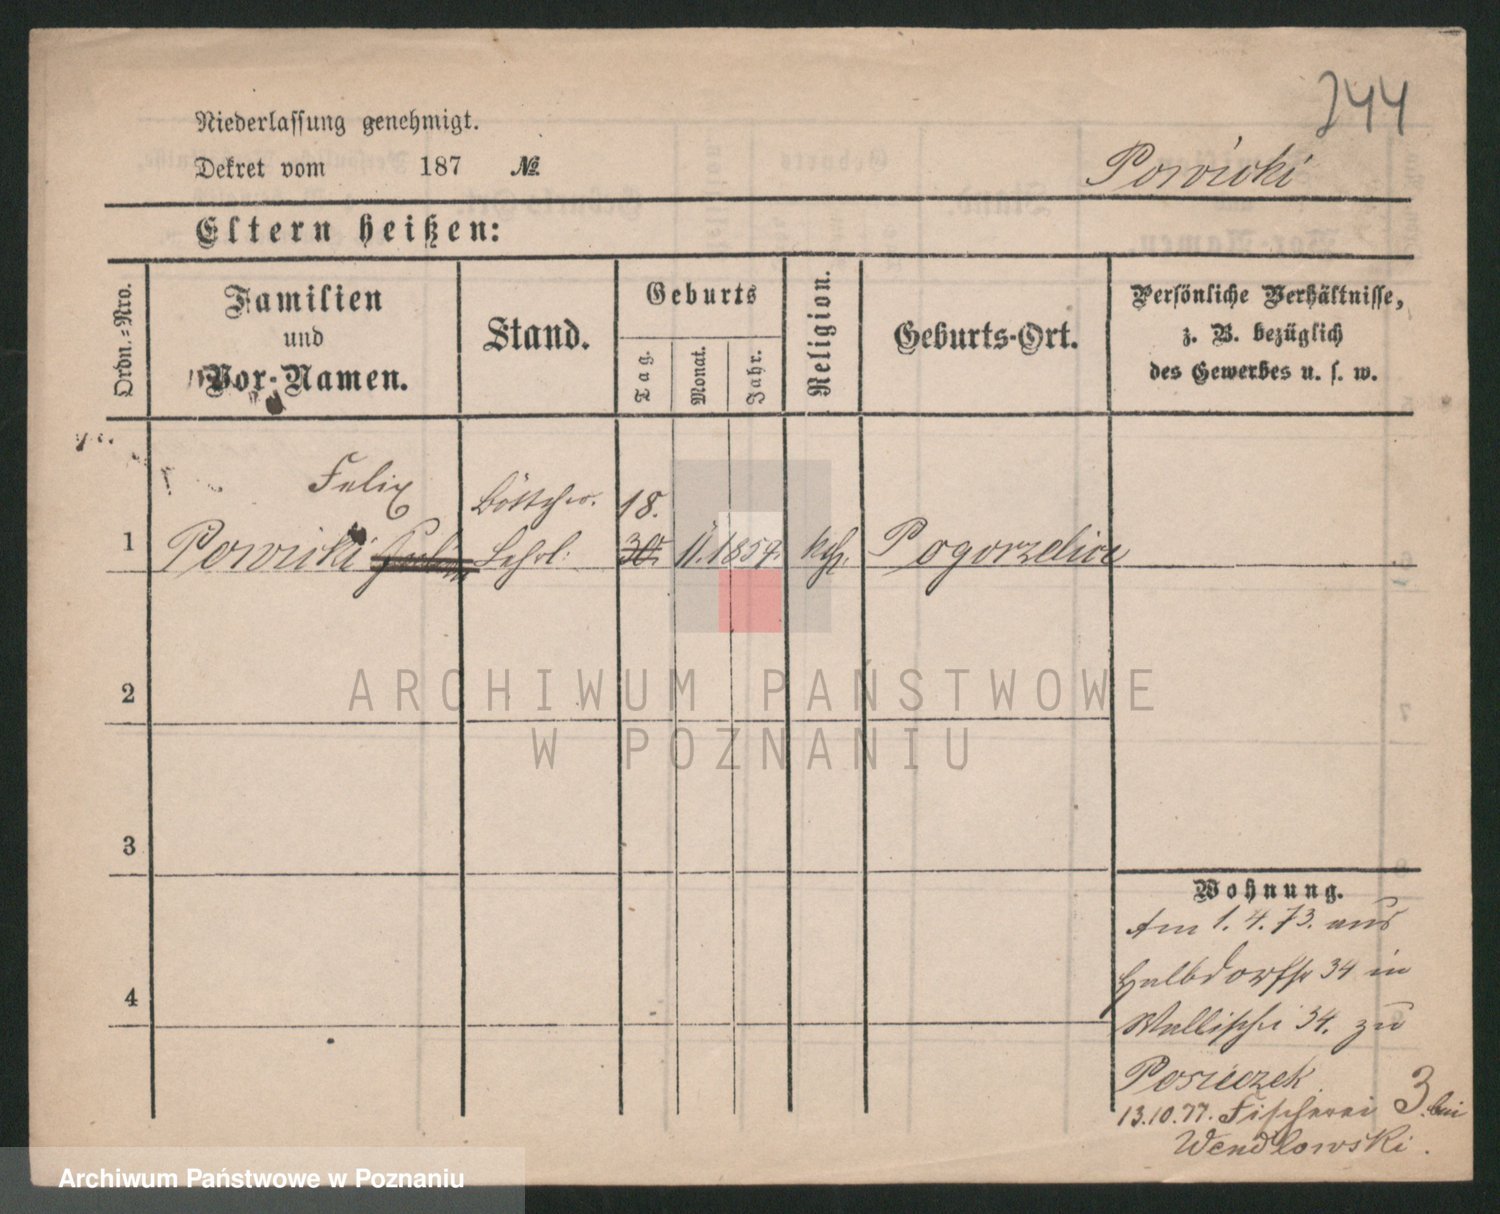 244
Niederlassung genehmigt.
Dekret vom 187 №
Powicki
Eltern heißen:
Ordn.-Nro.
Familien
und
Vor-Namen.
Stand.
Geburts
Tag.
Monat.
Jahr.
Religion.
Geburts-Ort.
Persönliche Verhältnisse,
z. B. bezüglich
des Gewerbes u. s. w.
Felix Böttcher. 18.
1 Powicki Lehrl. 30. 11. 1857. kath. Pogorzelice
2
3
4
Wohnung.
Am 1. 4. 73. aus
Halbdorfstr 34 in
Wallischei 34. zu
Posieczek
13.10.77. Fischerei 3. bei
Wendlowski.
ARCHIWUM PAŃSTWOWE
W POZNANIU
Archiwum Państwowe w Poznaniu